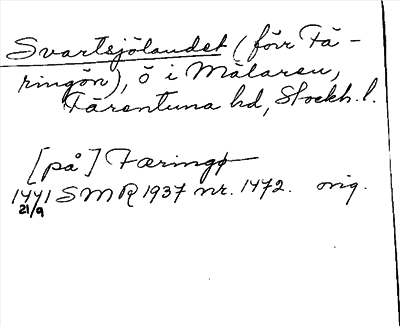 Svartsjölandet (förr Fä-
ringön), ö i Mälaren,
Färentuna hd, Stockh. l.
[på] Færingø
1441 SMR 1937 nr. 1472. orig.
21/9